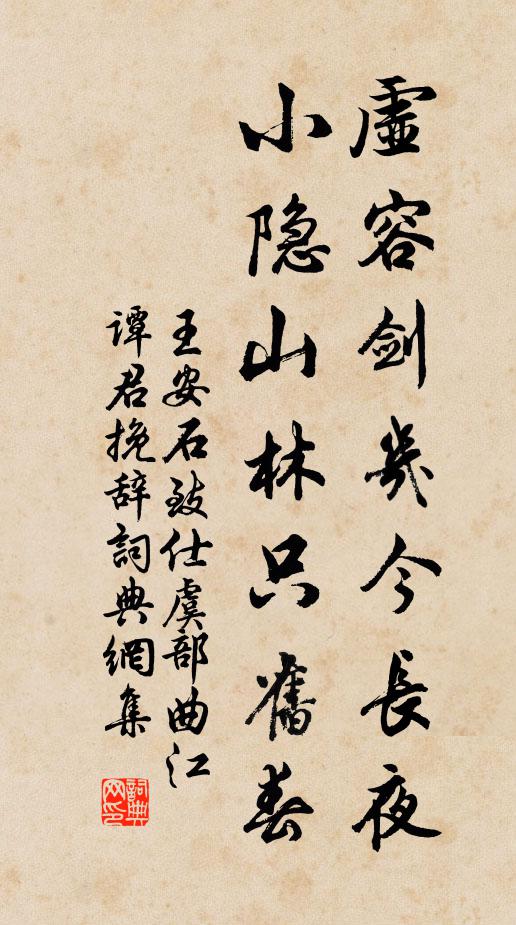 虛容劍几今長夜
小隐山林只舊春
王安石致仕虞部曲江
谭君挽辞詞典網集
詞典网印